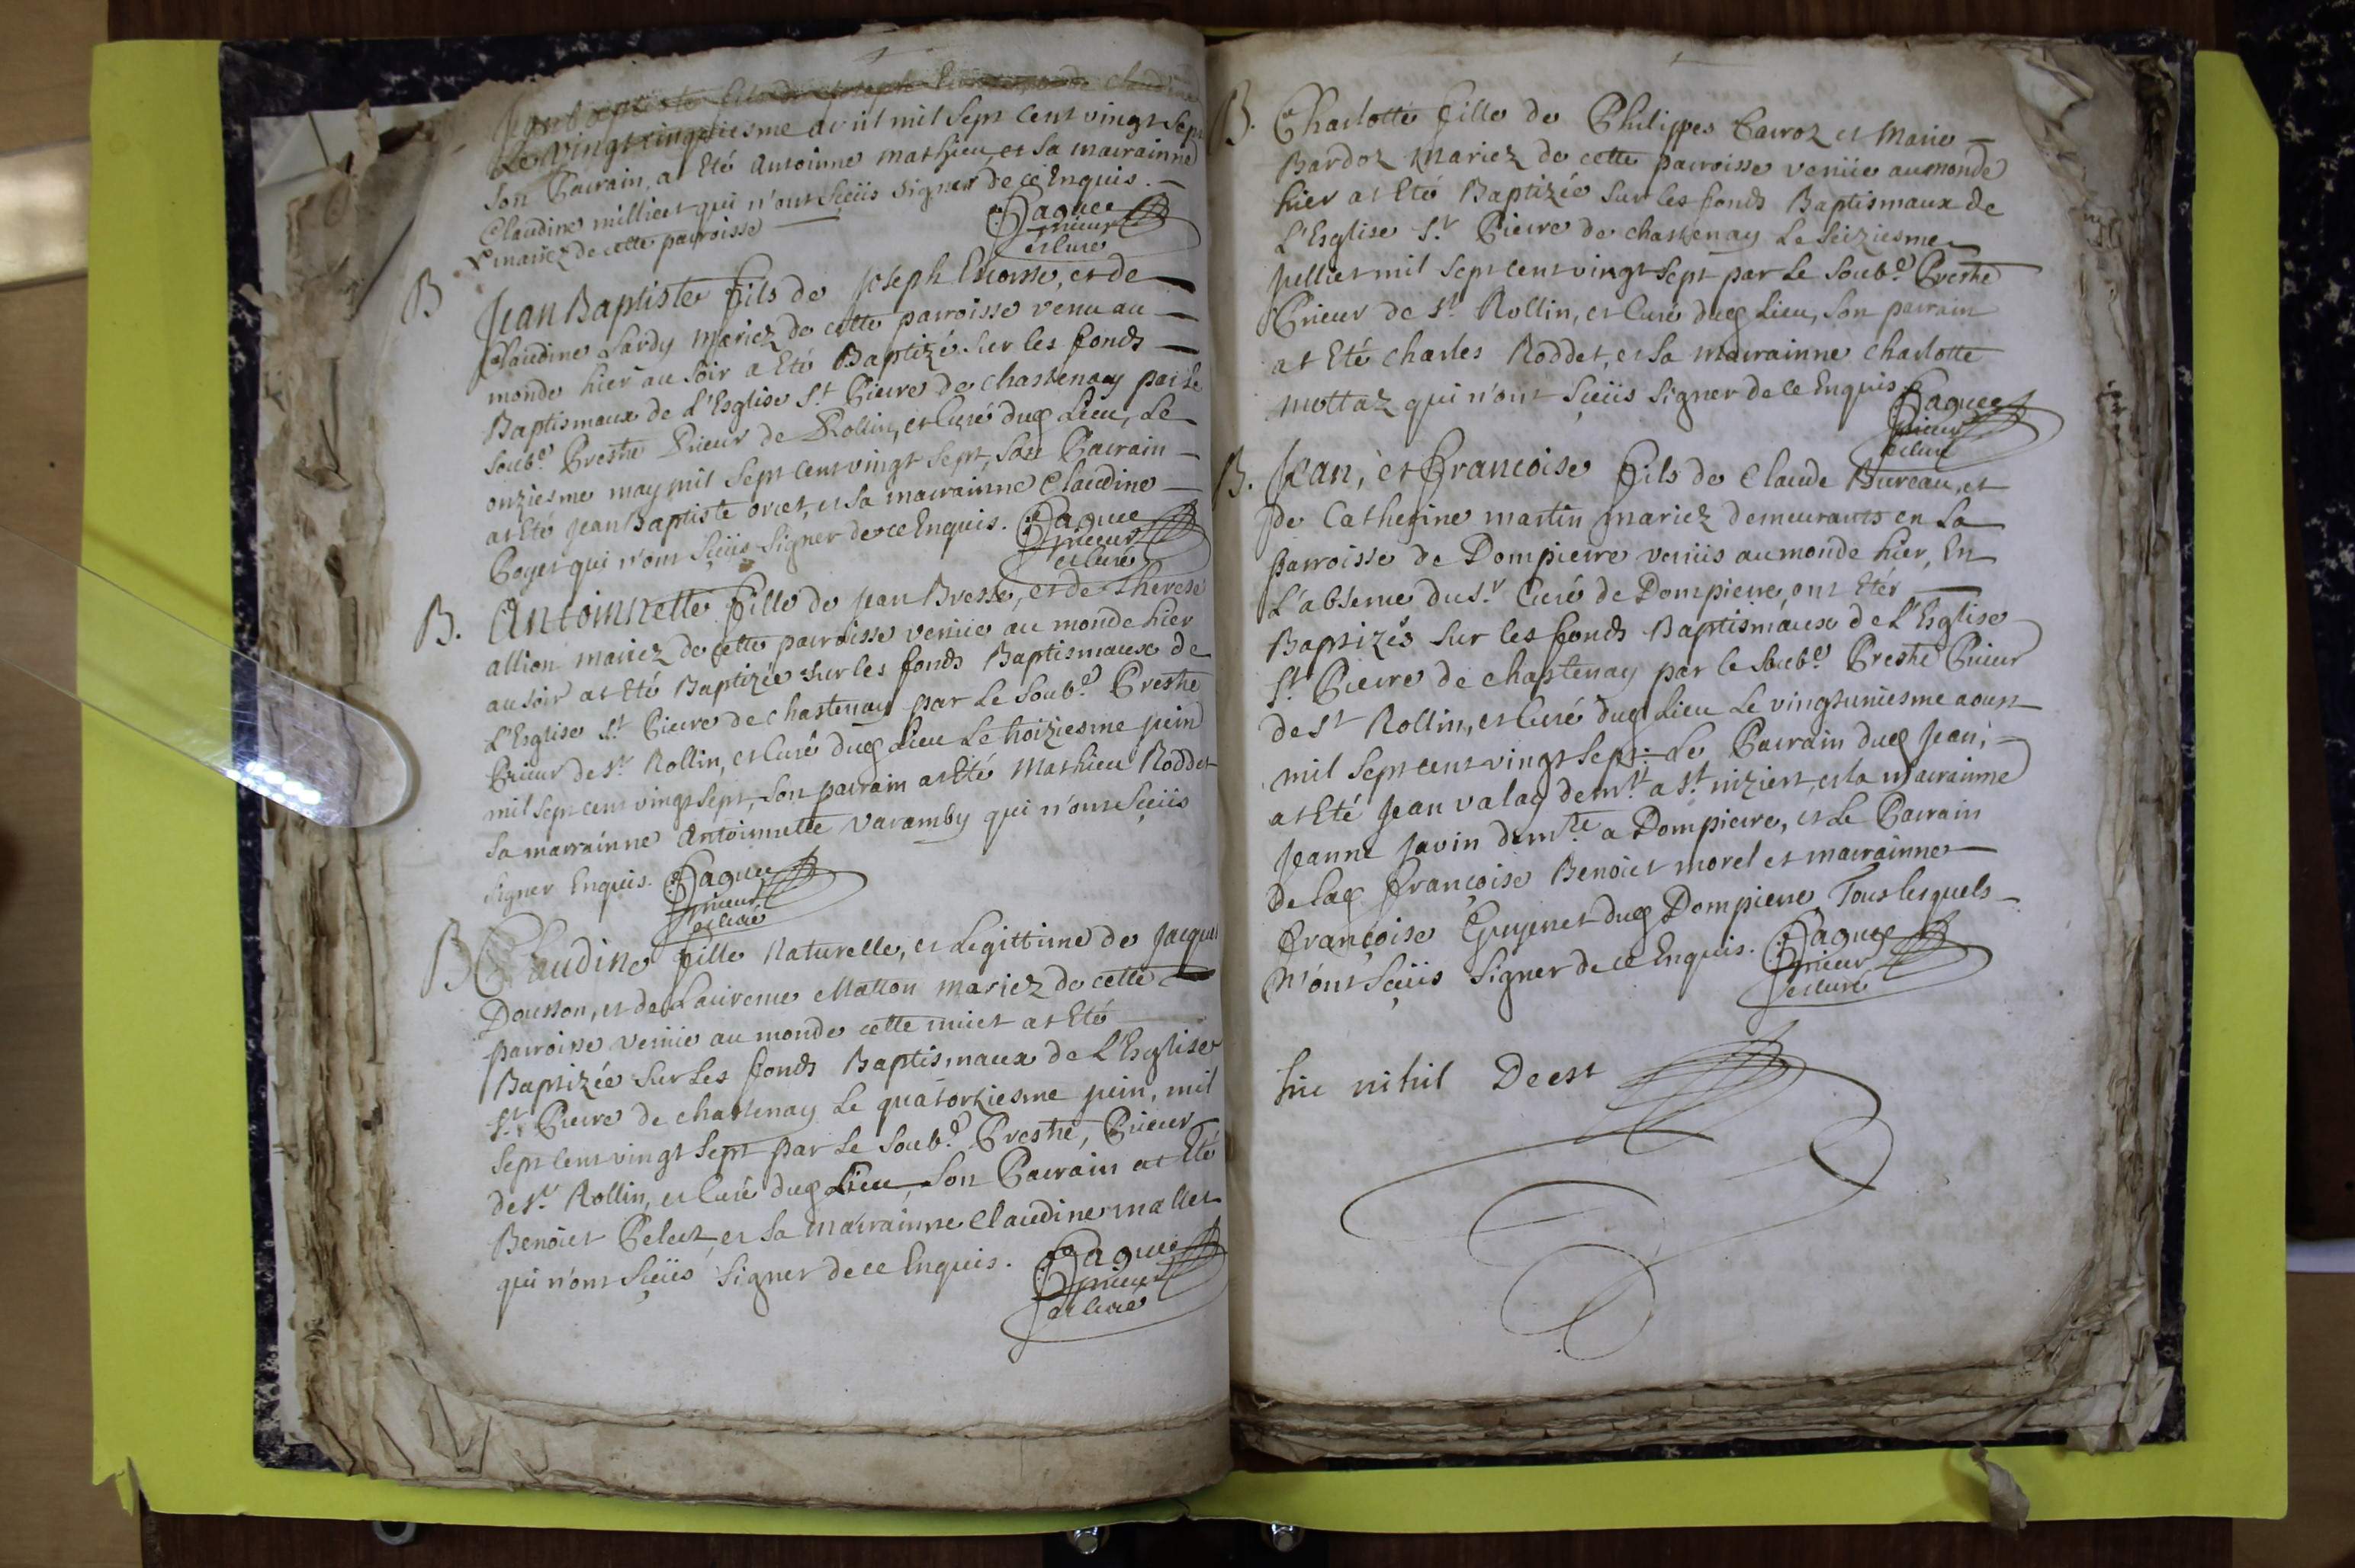 Jean baptiste fils de Joseph
Le vingt cinquiesme avril mil sept cent vingt sept
son Parrain, at Eté Antoinne mathieu, et sa marrainne
Claudine millieret qui n'ont sçeüs signer de ce Enquis. —
x mariez de cette parroisse —
Paquee
prieur
et Curé
B Jean Baptiste fils de Joseph, et de —
Claudine Lardy mariez de cette parroisse venu au —
monde hier au soir a Eté Baptizé sur les fonds —
Baptismaux de L'Esglise St Pierre de chastenay par Le
soub.é Prestre Prieur de Rollin, et Curé dud Lieu, Le —
onziesme may mil sept cent vingt sept, son Parrain —
at Eté Jean Baptiste orcet, et sa marrainne Claudine —
Poyet qui n'ont sçeüs signer de ce Enquis.
Paquee
prieur
et Curé
B. Antoinnette fille de Jean Bresse, et de Therese
allion mariez de cette parroisse venüe au monde hier
au soir at Eté Baptizée sur les fonds Baptismaux de
L'Esglise St Pierre de chastenay par Le soub.é Prestre
Prieur de St Rollin, et Curé dud Lieu Le troiziesme juin
mil sept cent vingt sept, son parrain at Eté Mathieu Roddet
sa marrainne Antoinnette varamby qui n'ont sçeüs
signer Enquis.
Paquee
prieur
et Curé
B Claudine fille Naturelle, et Legittime de Jacques
Dousson, et de Laurence Matton mariez de cette —
parroisse venüe au monde cette nuict at Eté —
Baptizée sur Les fonds Baptismaux de L'Esglise
St Pierre de chastenay Le quatorziesme juin, mil
sept cent vingt sept par Le soub.é Prestre, Prieur
de St Rollin, et Curé dud Lieu, son Parrain at Eté
Benoict Pelect, et sa marrainne Claudine mallet
qui n'ont sçeüs signer de ce Enquis.
Paquee
prieur
et Curé
B. Charlotte fille de Philippes Carroz et Marie —
Bardoz mariez de cette parroisse venüe au monde
hier at Eté Baptizée sur les fonds Baptismaux de
L'Esglise St Pierre de chastenay Le seiziesme
juillet mil sept cent vingt sept par Le soub.é Prestre
Prieur de St Rollin, et Curé dud Lieu, son parrain
at Eté charles Roddet, et sa marrainne charlotte
mottaz qui n'ont sçeüs signer de ce Enquis.
Paquee
prieur
et Curé
B. Jean, et françoise fils de Claude Bureau, et
de Catherine martin mariez demeurants en La
parroisse de Dompierre venüs au monde hier, En
L'absence du Sr Curé de Dompierre, ont Etés —
Baptizés sur les fonds Baptismaux de L'Esglise
St Pierre de chastenay par le soub.é Prestre Prieur
de St Rollin, et Curé dud Lieu Le vingtuniesme aoust
mil sept cent vingt sept: Le Parrain dud Jean, —
at Eté Jean valay demt. a St nizier, et la marrainne
Jeanne javin demte a Dompierre, et Le Parrain
de Lad françoise Benoict morel et marrainne —
françoise Guyenet dud Dompierre, Tous lesquels —
n'ont sçeüs signer de ce Enquis.
Paquee
prieur
et Curé
hic nihil Deest